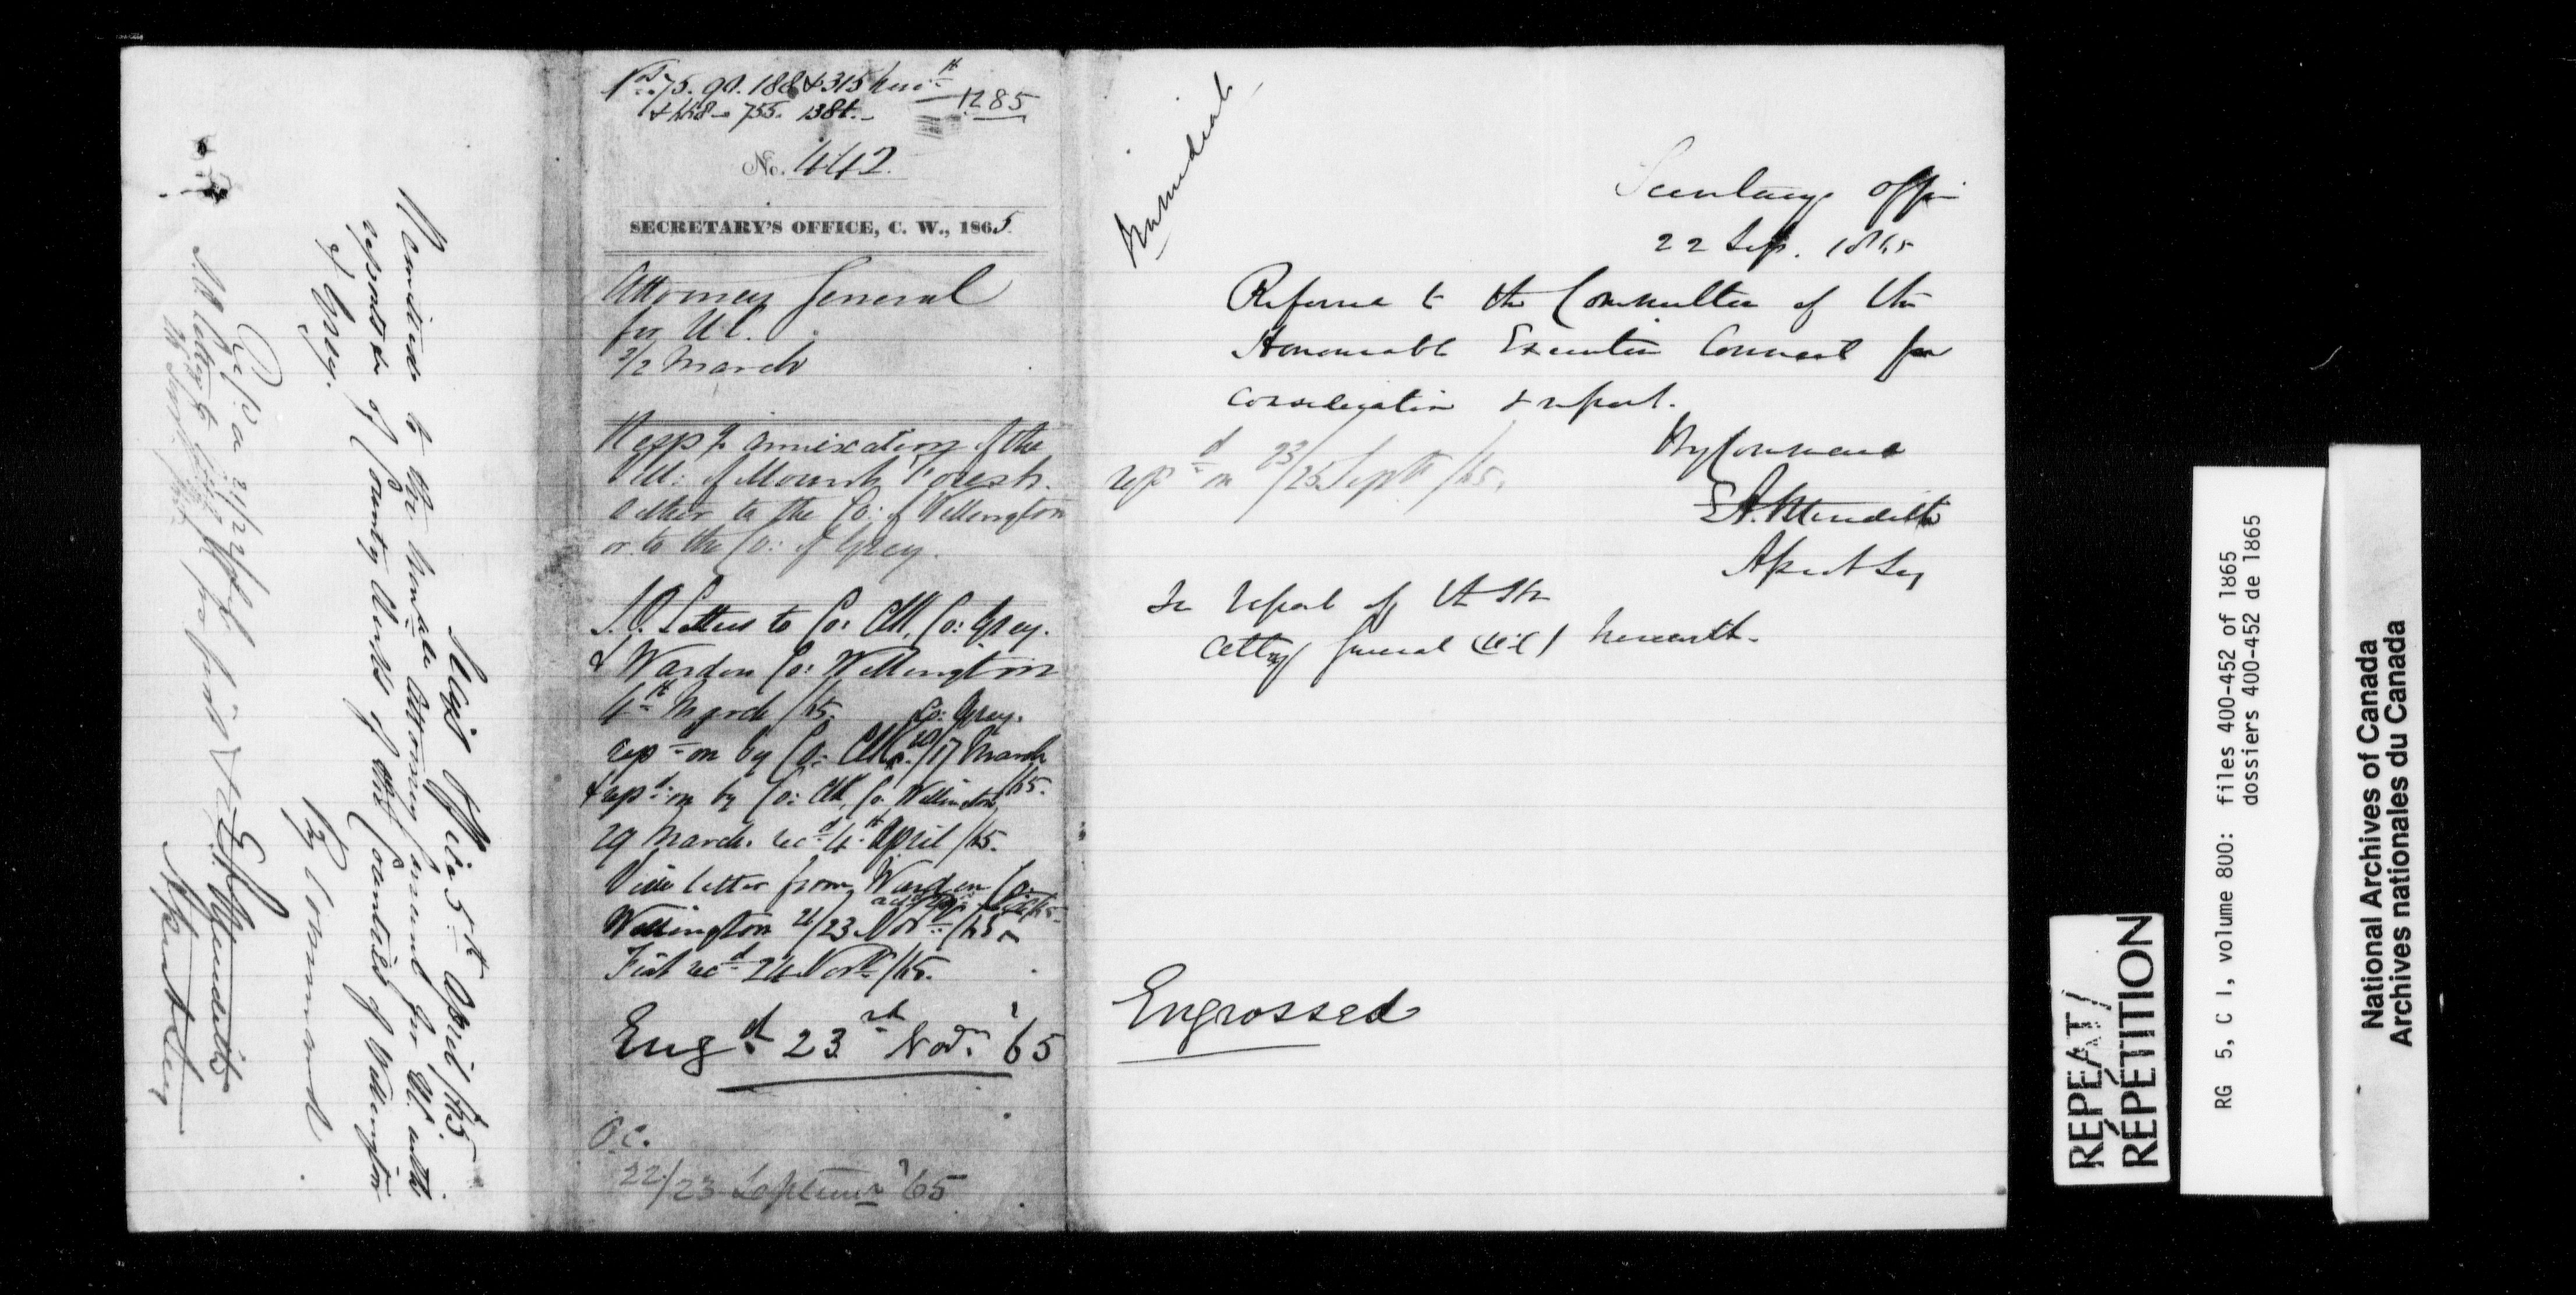 Secy's Office 5th April /65
Remitted to the Honable Attorney General for U.C. with
reports of County Clerks of the Counties of Wellington
& Grey.
By Command
E.A. Meredith
Asst Secy
Nos 75. 90. 188 & 315 herewith
1285
& 448 - 755. 1381.
No. 442.
SECRETARY'S OFFICE, C. W., 1865.
Attorney General
for U.C.
2/2 March
Resp'g annexation of the
Vill: of Mount Forest
either to the Co: of Wellington
or to the Co: of Grey.
Letters to Co: Clk, Co: Grey.
& Warden Co: Wellington
4th March /65.
Co: Grey.
repd on by Co: Clk /17 March
/65.
& repd on by Co: Clk, Co. Wellington
29 March. recd 4th April /65.
Vide letter from Warden Co:
Wellington 21/23 Novr /65
Fiat recd 24 Novr /65.
Engd 23rd Novr '65
O.C.
22/23 Septemr '65
Immediate
Secretary's Office
22 Sep. 1865
Referred to the Committee of the
Honourable Executive Council for
consideration & report.
By Command
E.A. Meredith
Asst Secy
repd on 23/25 Septr /65.
In report of the
Atty General (U.C.) herewith.
Engrossed
REPEAT/
RÉPÉTITION
RG 5, C 1, volume 800: files 400-452 of 1865
dossiers 400-452 de 1865
National Archives of Canada
Archives nationales du Canada